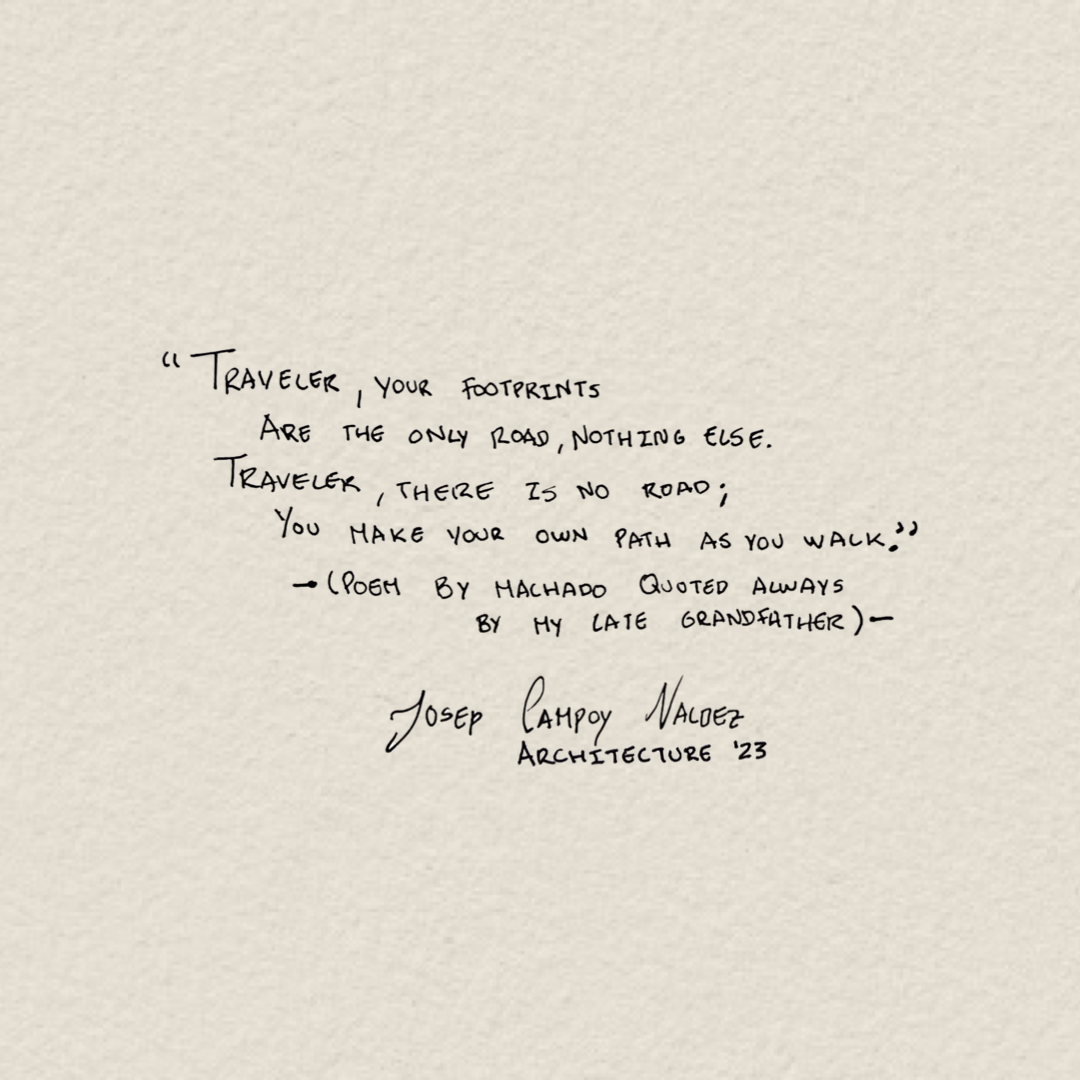 “Traveler, your footprints
Are the only road, nothing else.
Traveler, there is no road;
You make your own path as you walk.”
—(Poem by Machado Quoted always
by my late grandfather)—
Josep Campoy Naldez
Architecture '23